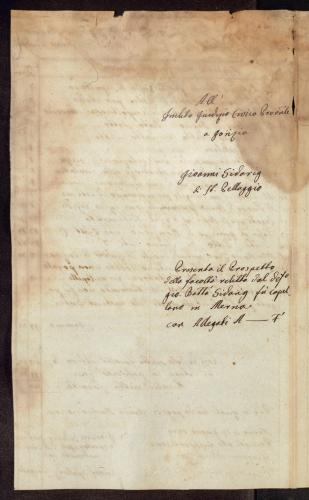 All'
Inclito Giudizio Civico Provinle
a Gorizia
Giovanni Sidarig
di St. Pellaggio
Presenta il Prospetto
della facoltà relitta dal defo
Gio. Batta Sidarig fù Capel
lano in Merna
con Allegati A — F